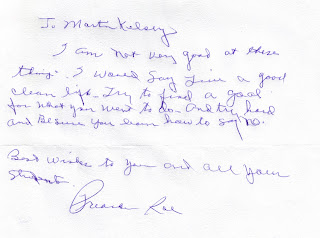 To Martin Kelsey
I am not very good at these
things. I would say Live a good
clean life. Try to find a goal
for what you want to do. And try hard
and Besure you learn how to say no.
Best wishes to you and all your
Students.